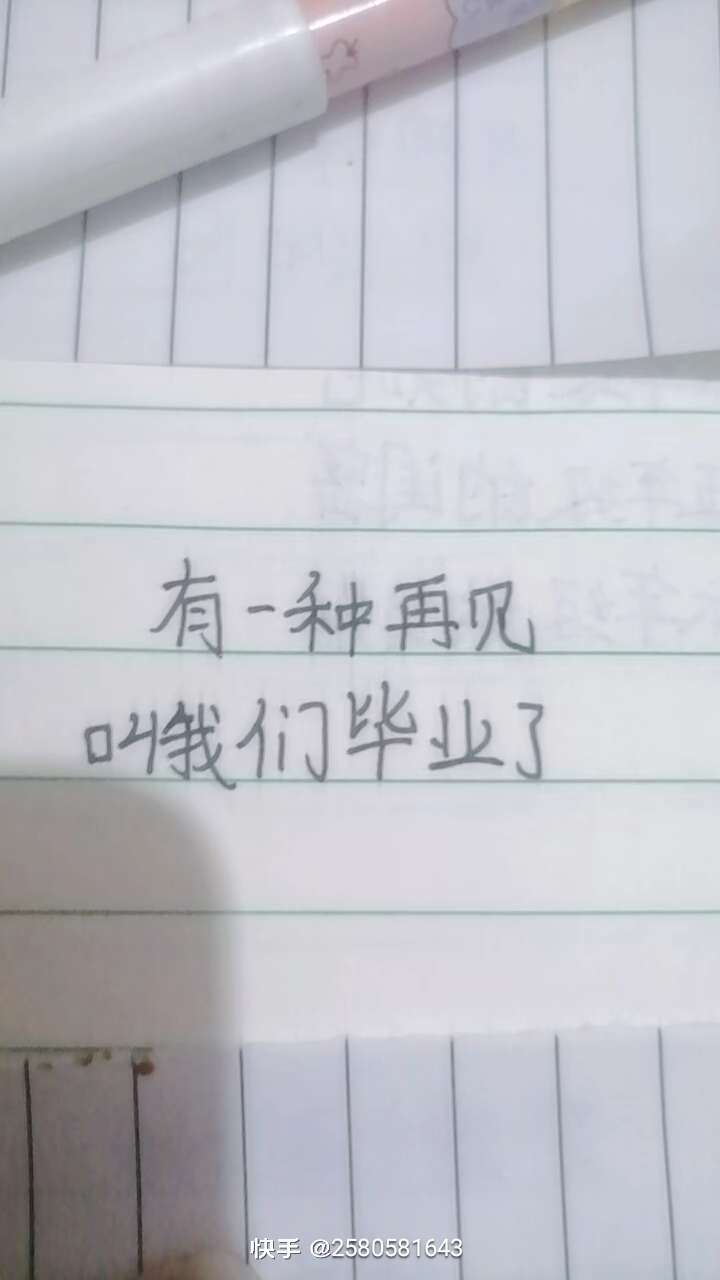 有一种再见
叫我们毕业了
快手 @2580581643